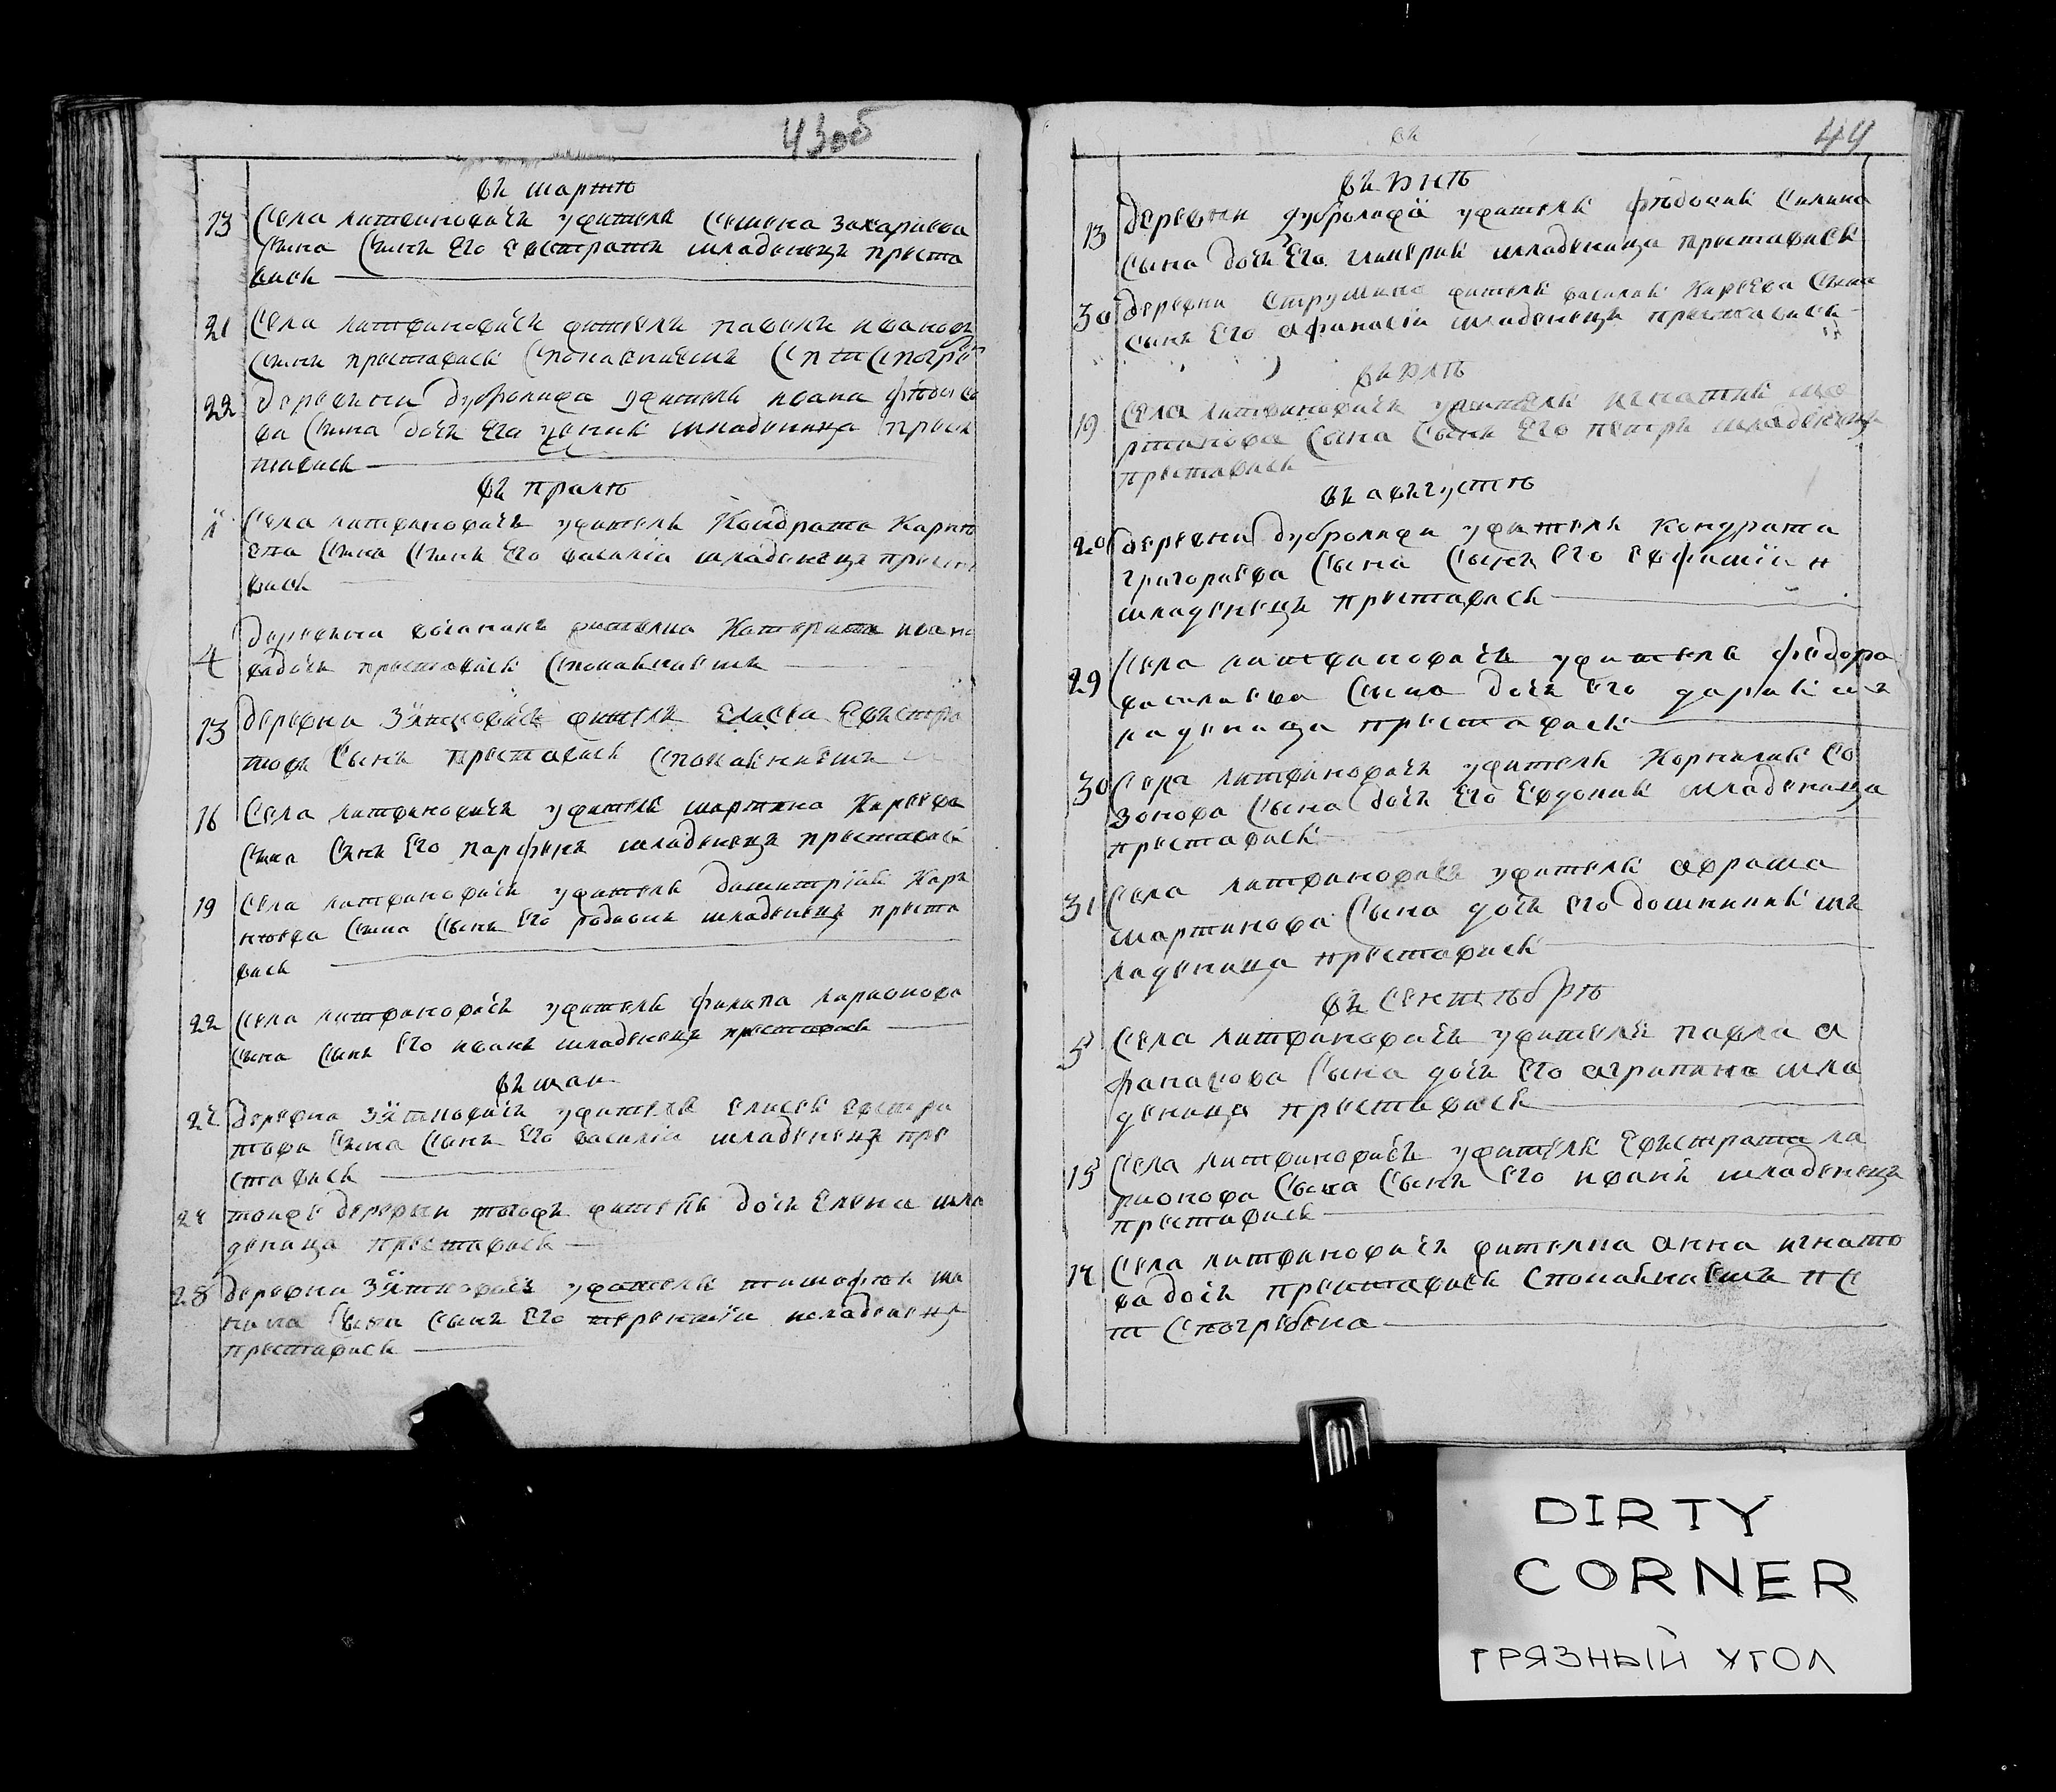 43об
въ мартѣ
13 Села литвиновичь ужителя семена захариева
сына сынъ его евстратъ младенецъ преста
вися
21 Села литвиновичь житель павелъ ивановъ
сынъ преставися споканниемъ
22 деревни дубролива ужителя ивана
ва сына дочь его младеница прес
тавися
въ прилѣ
1 Села литвиновичь ужителя Кондрата
сына сынъ его василиа младенецъ прест
вися
4 деревни жителка Катерина ивано
ва дочь преставися споканниемъ
13 деревни житель елисеа евстра
товъ сынъ преставися споканниемъ
16 Села литвиновичь ужителя мартина Киреева
сына сынъ его парфенъ младенецъ преставися
19 Села литвиновичь ужителя дамитрия Кор
нѣева сына сынъ его родионъ младенецъ преста
вися
22 Села литвиновичь ужителя филипа ларионова
сына сынъ его иванъ младенецъ преставися
въ маи
22 деревни ужителя елисея евстра
това сына сынъ его василиа младенецъ пре
ставися
24 тоиже деревни тогожъ жителя дочь елена мла
деница преставися
28 деревни ужителя тимофея
сына сынъ его терентии младенецъ
преставися
въ
44
въ юнѣ
13 деревни дубролива ужителя фѣдосия силина
сына дочь его гликерия младеница преставися
30 деревни струмина жителя василия Киреева сына
сынъ его афанасия младенецъ преставися
въ юлѣ
19 Села литвиновичь ужителя игнатия ма
ртинова сына сынъ его петръ младенецъ
преставися
въ августѣ
20 деревни дубролива ужителя кондрата
григориева сына сынъ его ефимиан
младенецъ преставися
29 Села литвиновичь ужителя федора
василиева сына дочь его дария мъ
ладеница преставися
30 Села литвиновичь ужителя Корнилия со
зонова сына дочь его евдокия младеница
преставися
31 Села литвиновичь ужителя аврама
мартинова сына дочь его домникия мъ
ладеница преставися
въ сентябрѣ
5 Села литвиновичь ужителя павла а
фанасова сына дочь его агрипина мла
деница преставися
15 Села литвиновичь ужителя евъстрата ла
рионова сына сынъ его иванъ младенецъ
преставися
Села литвиновичь жителка анна игнато
ва дочь преставися споканниемъ пс
т спогребена
DIRTY
CORNER
ГРЯЗНЫЙ УГОЛ